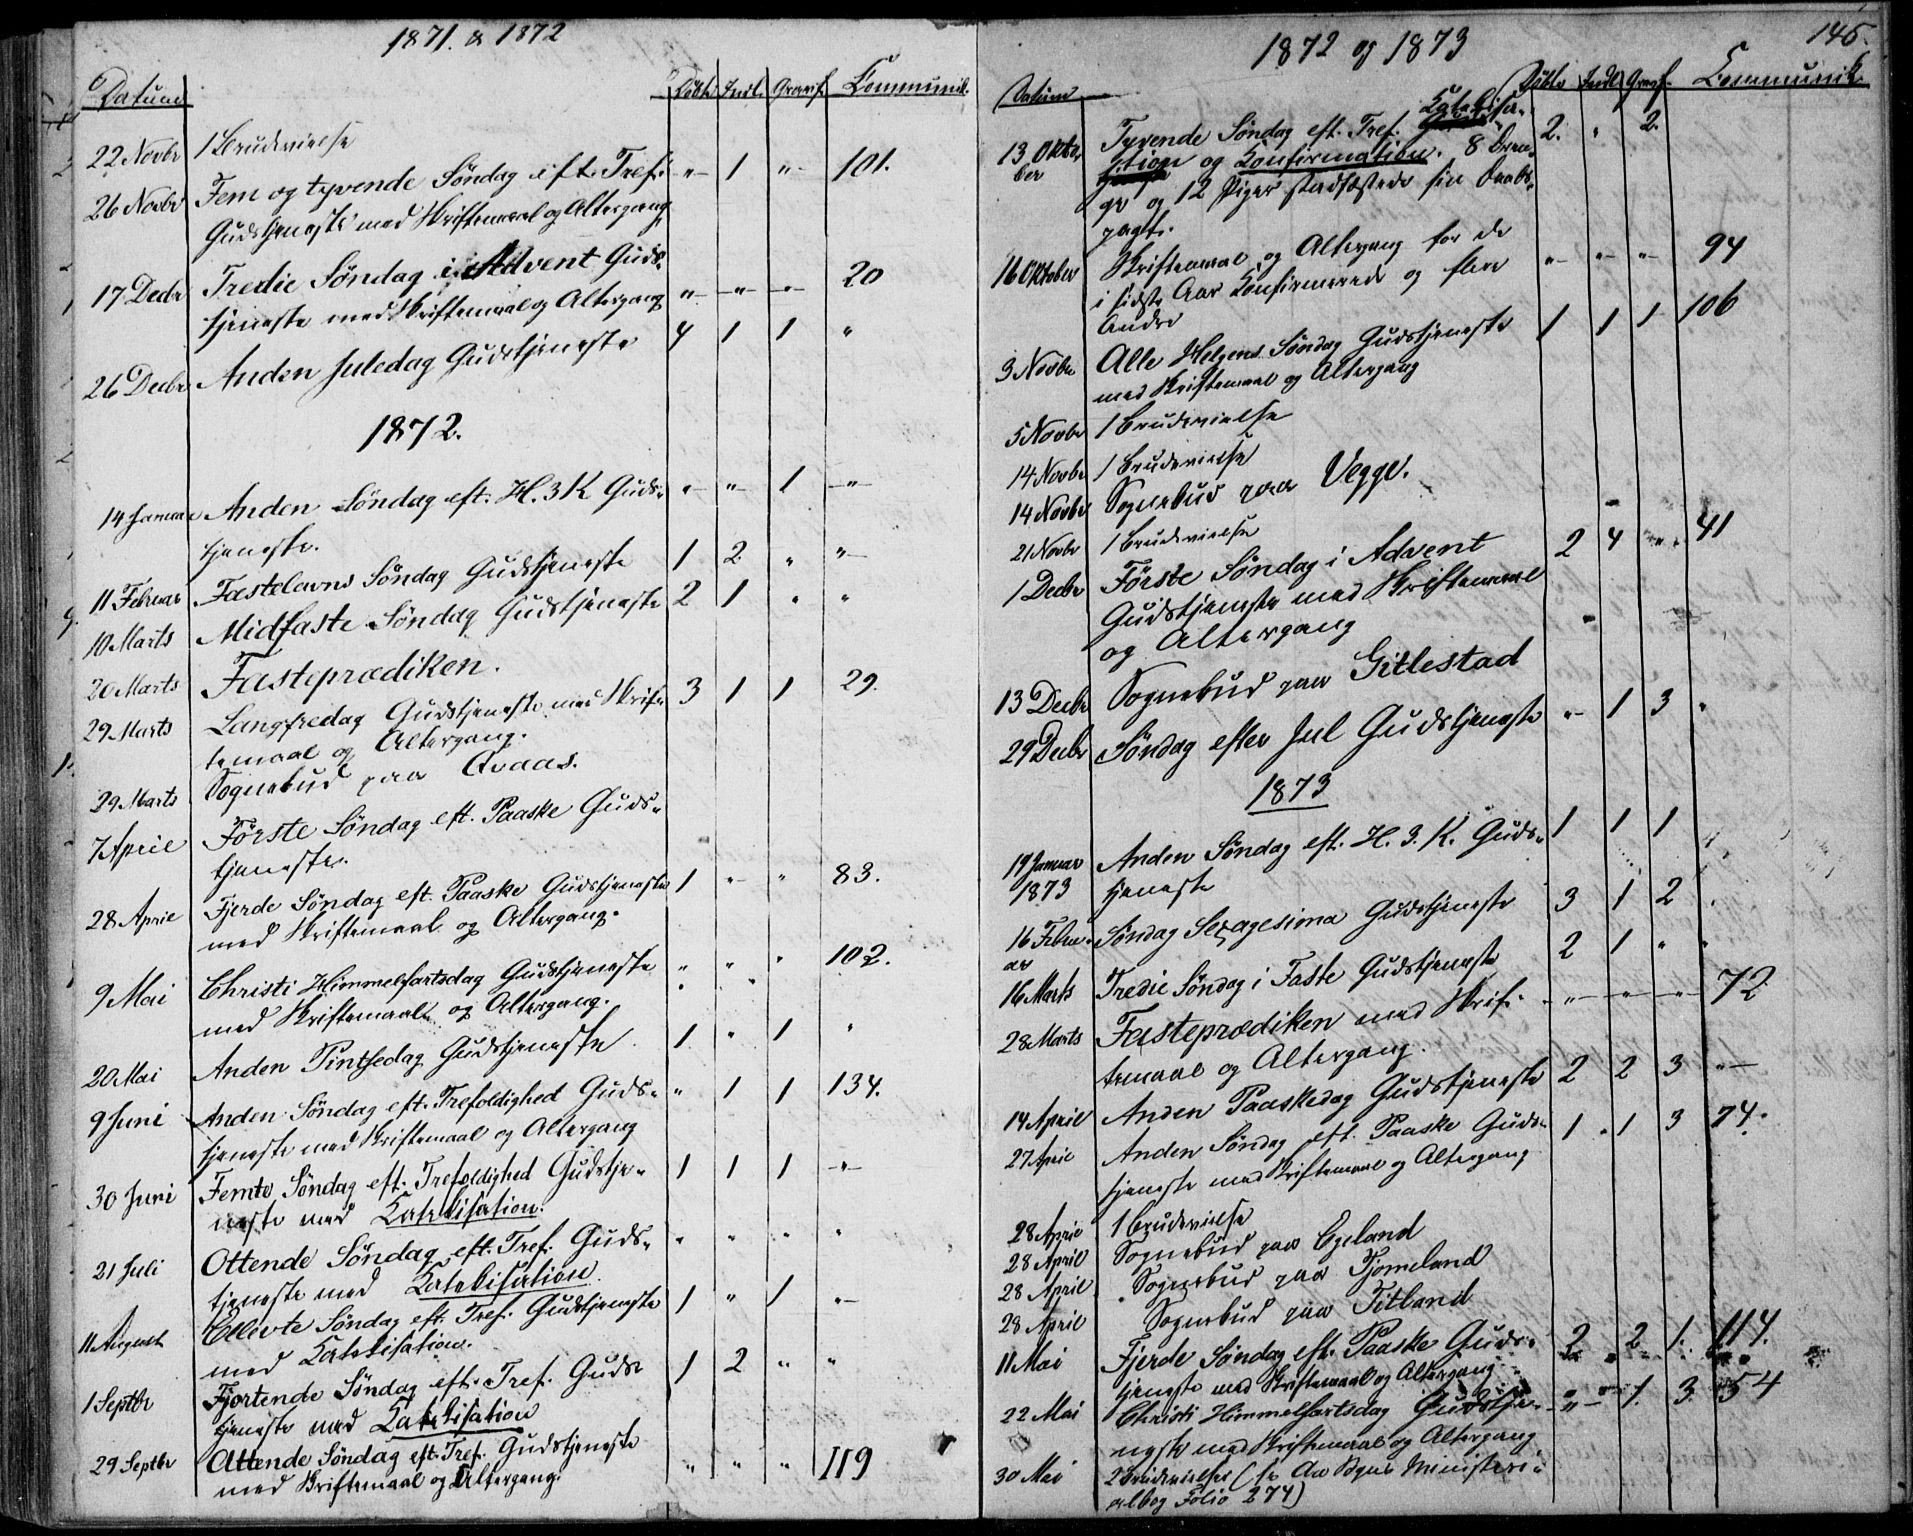 1871. & 1872
Datum Döbte Indl. Gravf. Communik.
22 Novbr 1 Brudevielse
26 Novbr Fem og tyvende Söndag eft. Tref. " 1 " 101.
Gudstjeneste med Skriftemaal og Altergang
17 Decbr Tredie Söndag i Advent Guds- " " " 20
tjeneste med Skriftemaal og Altergang
26 Decbr Anden Juledag Gudstjeneste 4 1 1 "
1872.
14 Januar Anden Söndag eft. H. 3 K Guds- " " 1 "
tjeneste.
11 Februar Fastelavns Söndag Gudstjeneste 1 2 " "
10 Marts Midfaste Söndag Gudstjeneste 2 1 " "
20 Marts Fasteprædiken.
29 Marts Langfredag Gudstjeneste med Skrif- 3 1 1 29.
temaal og Altergang.
29 Marts Sognebud paa Qvaas.
7 April Förste Söndag eft. Paaske Guds-
tjeneste.
28 April Fjerde Söndag eft. Paaske Gudstjeneste 1 " " 83.
med Skriftemaal og Altergang.
9 Mai Christi Himmelfartsdag Gudstjeneste " " " 102.
med Skriftemaal og Altergang.
20 Mai Anden Pintsedag Gudstjeneste 1 " 1 "
9 Juni Anden Söndag eft. Trefoldighed Guds- " 1 1 134.
tjeneste med Skriftemaal og Altergang
30 Juni Femte Söndag eft. Trefoldighed Gudstje- 1 1 1 "
neste med Katekisation.
21 Juli Ottende Söndag eft. Tref. Guds- " " " "
tjeneste med Katekisation
11 August Ellevte Söndag eft. Tref. Gudstjeneste 1 " 1 "
med Katekisation.
1 Septbr Fjortende Söndag eft. Tref. Guds- 1 2 " "
tjeneste med Katekisation
29 Septbr Attende Söndag eft. Tref. Gudstjeneste " " " 119
med Skriftemaal og Altergang.
1872 og 1873 145.
Datum Döbte Indl. Gravf. Communik.
13 Okto- Tyvende Söndag eft. Tref. Katekisa- 2. " 2.
ber tion og Konfirmation. 8 Dren-
ge og 12 Piger stadfæstede sin Daabs-
pagt.
16 Oktober Skriftemaal og Altergang for de " " " 94
i sidste Aar Konfirmerede og flere
Andre
3 Novbr Alle Helgens Söndag Gudstjeneste 1 1 1 106
med Skriftemaal og Altergang
5 Novbr 1 Brudevielse
14 Novbr 1 Brudevielse
14 Novbr Sognebud paa Vegge.
21 Novbr 1 Brudevielse
1 Decbr Förste Söndag i Advent 2 4 " 41
Gudstjeneste med Skriftemaal
og Altergang
13 Decbr Sognebud paa Gitlestad
29 Decbr Söndag efter Jul Gudstjeneste " 1 3 "
1873
19 Januar Anden Söndag eft. H. 3. K. Guds- 1 1 1
1873 tjeneste
16 Febru- Söndag Sexagesima Gudstjeneste 3 1 2 "
ar
16 Marts Tredie Söndag i Faste Gudstjeneste 2 1 " "
28 Marts Fasteprædiken med Skrif- " " " 72
temaal og Altergang.
14 April Anden Paaskedag Gudstjeneste 2 2 3 "
27 April Anden Söndag eft. Paaske Guds- 1 1 3 74.
tjeneste med Skriftemaal og Altergang
28 April 1 Brudevielse
28 April Sognebud paa Egeland
28 April Sognebud paa Tjomeland
28 April Sognebud paa Titland
11 Mai Fjerde Söndag eft. Paaske Guds- 2 2 1. 114.
tjeneste med Skriftemaal og Altergang
22 Mai Christi Himmelfartsdag Gudstje- " 1. 3. 54
neste med Skriftemaal og Altergang
30 Mai 2 Brudevielser (se Aa Sogns Ministeri-
albog Folio 274)